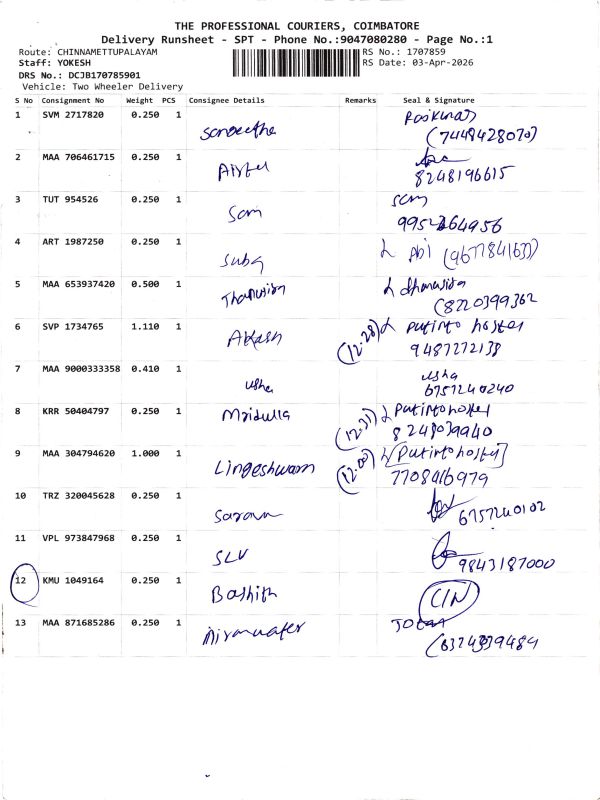 THE PROFESSIONAL COURIERS, COIMBATORE
Delivery Runsheet - SPT - Phone No.:9047080280 - Page No.:1
Route: CHINNAMETTUPALAYAM RS No.: 1707859
Staff: YOKESH RS Date: 03-Apr-2026
DRS No.: DCJB170785901
Vehicle: Two Wheeler Delivery
S No Consignment No Weight PCS Consignee Details Remarks Seal & Signature
1 SVM 2717820 0.250 1
(7449428070)
2 MAA 706461715 0.250 1 Airtel
8248196615
3 TUT 954526 0.250 1 Scm scm
4 ART 1987250 0.250 1 Suba Abi
5 MAA 653937420 0.500 1
(8220399362
6 SVP 1734765 1.110 1 Akash (12.28)
9487272138
7 MAA 9000333358 0.410 1 usha usha
6757240240
8 KRR 50404797 0.250 1 Mridulla (12.31)
8248039940
9 MAA 304794620 1.000 1 Lingeshwaran (12.00)
7708416979
10 TRZ 320045628 0.250 1 Saravan
6757240102
11 VPL 973847968 0.250 1 SLV
9843187000
12 KMU 1049164 0.250 1 Bashith CIN
13 MAA 871685286 0.250 1